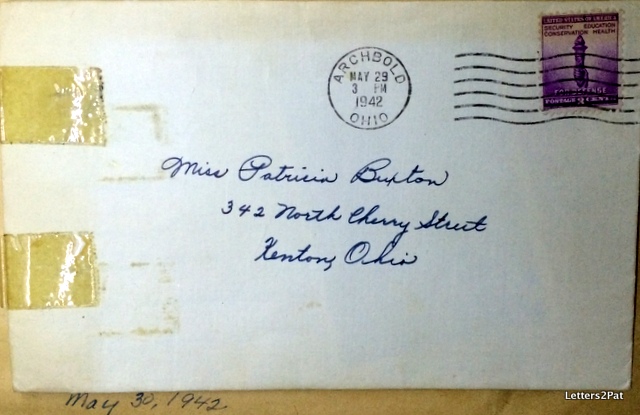 UNITED STATES OF AMERICA
SECURITY EDUCATION
CONSERVATION HEALTH
FOR DEFENSE
POSTAGE 3 CENTS
ARCHBOLD
MAY 29
3 PM
1942
OHIO
Miss Patricia Buxton
342 North Cherry Street
Kenton, Ohio
May 30, 1942
Letters2Pat